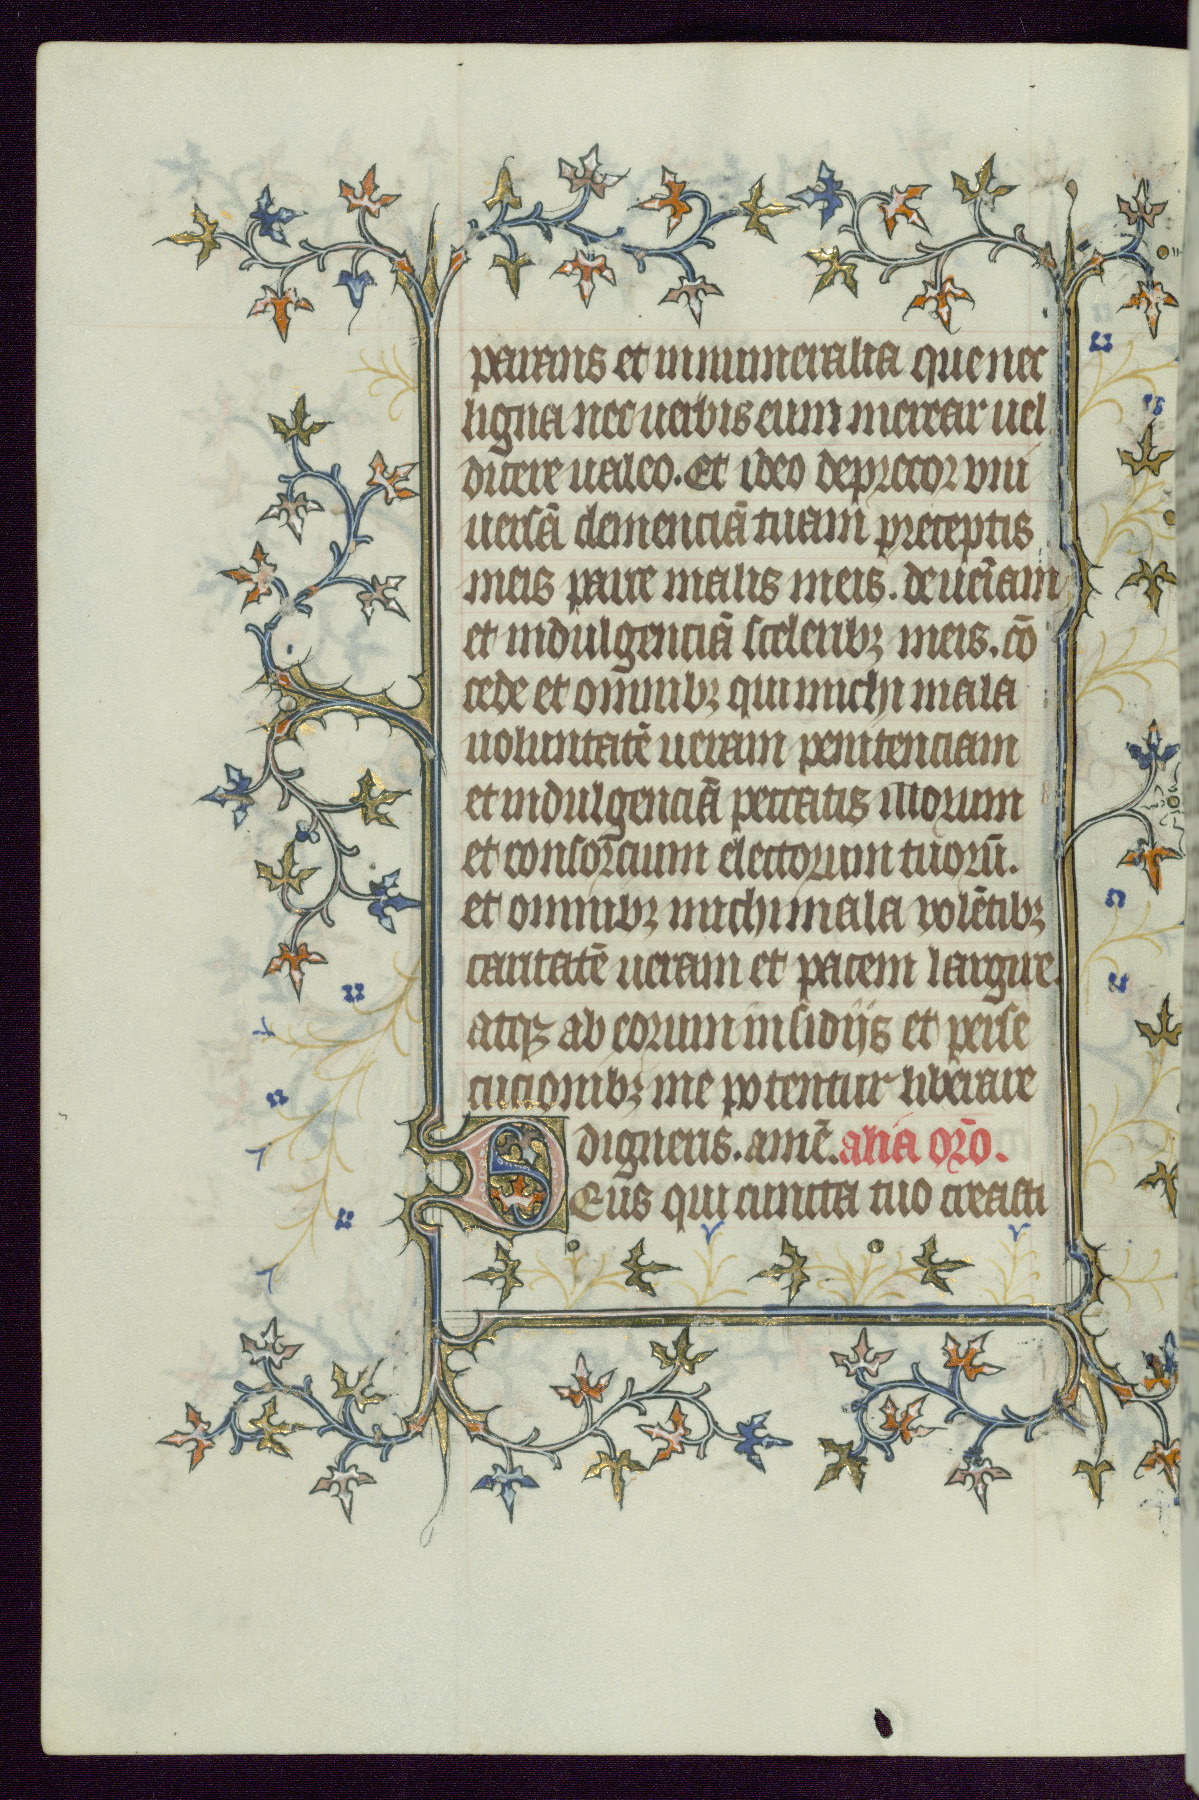 parans et innumeralia que nec
ligna nec uerbis eum merear uel
dicere ualeo. Et ideo deprecor vni
uersã clemenciã tuam preceptis
meis parce malis meis. da ueĩam
et indulgenciã sceleribꝫ meis. cõ
cede et omnibꝫ qui michi mala
uoluntatẽ ueram penitenciam
et indulgenciã peccatis illorum
et consorcium electorum tuorũ.
et omnibꝫ michi mala volẽtibꝫ
caritatẽ ueram et pacem largire
atqꝫ ab eorum insidijs et perse
cucionibꝫ me potentur liberare
digneris. amẽ. alia orõ.
Deus qui cuncta tuo creasti